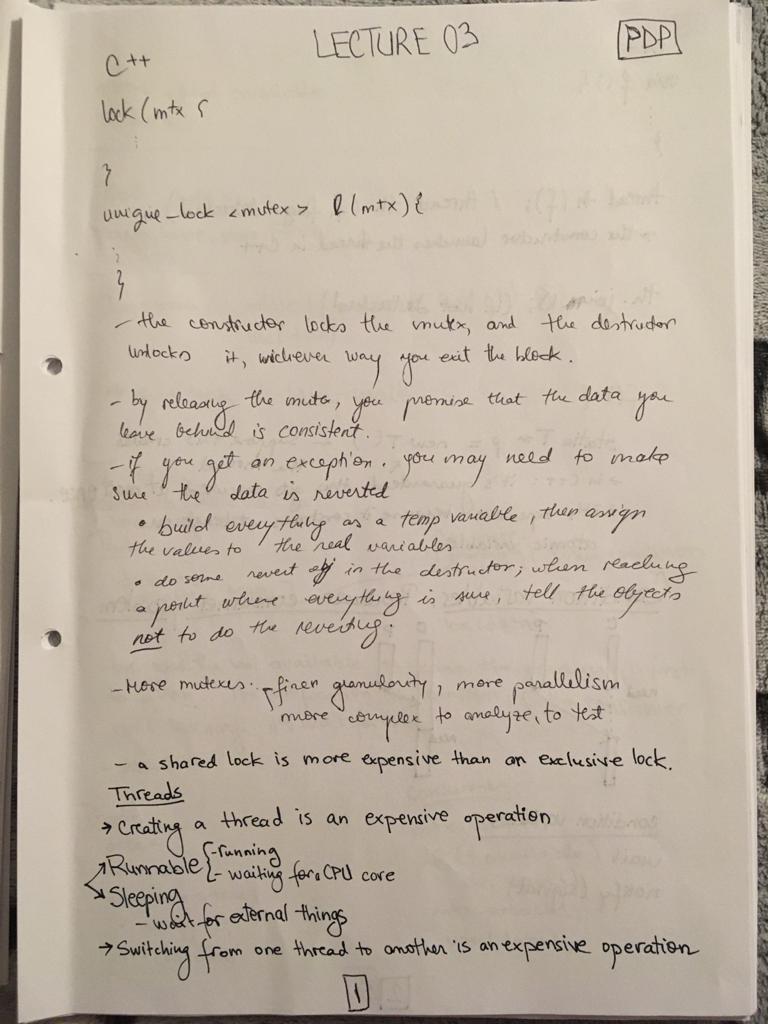 LECTURE 03
PDP
C++
lock (mtx {
⋮
}
unique_lock <mutex> l(mtx){
⋮
}
- the constructor locks the mutex, and the destructor
unlocks it, wichever way you exit the block.
- by releasing the mutex, you promise that the data you
leave behind is consistent.
- if you get an exception. you may need to make
sure the data is reverted
• build everything as a temp variable, then assign
the values to the real variables
• do some revert obj in the destructor; when reaching
a point where everything is sure, tell the objects
not to do the reverting.
- More mutexes. - finer granularity, more parallelism
more complex to analyze, to test
- a shared lock is more expensive than an exclusive lock.
Threads
→ Creating a thread is an expensive operation
Runnable { - running
- waiting for a CPU core
Sleeping
- wait for external things
→ Switching from one thread to another is an expensive operation
1